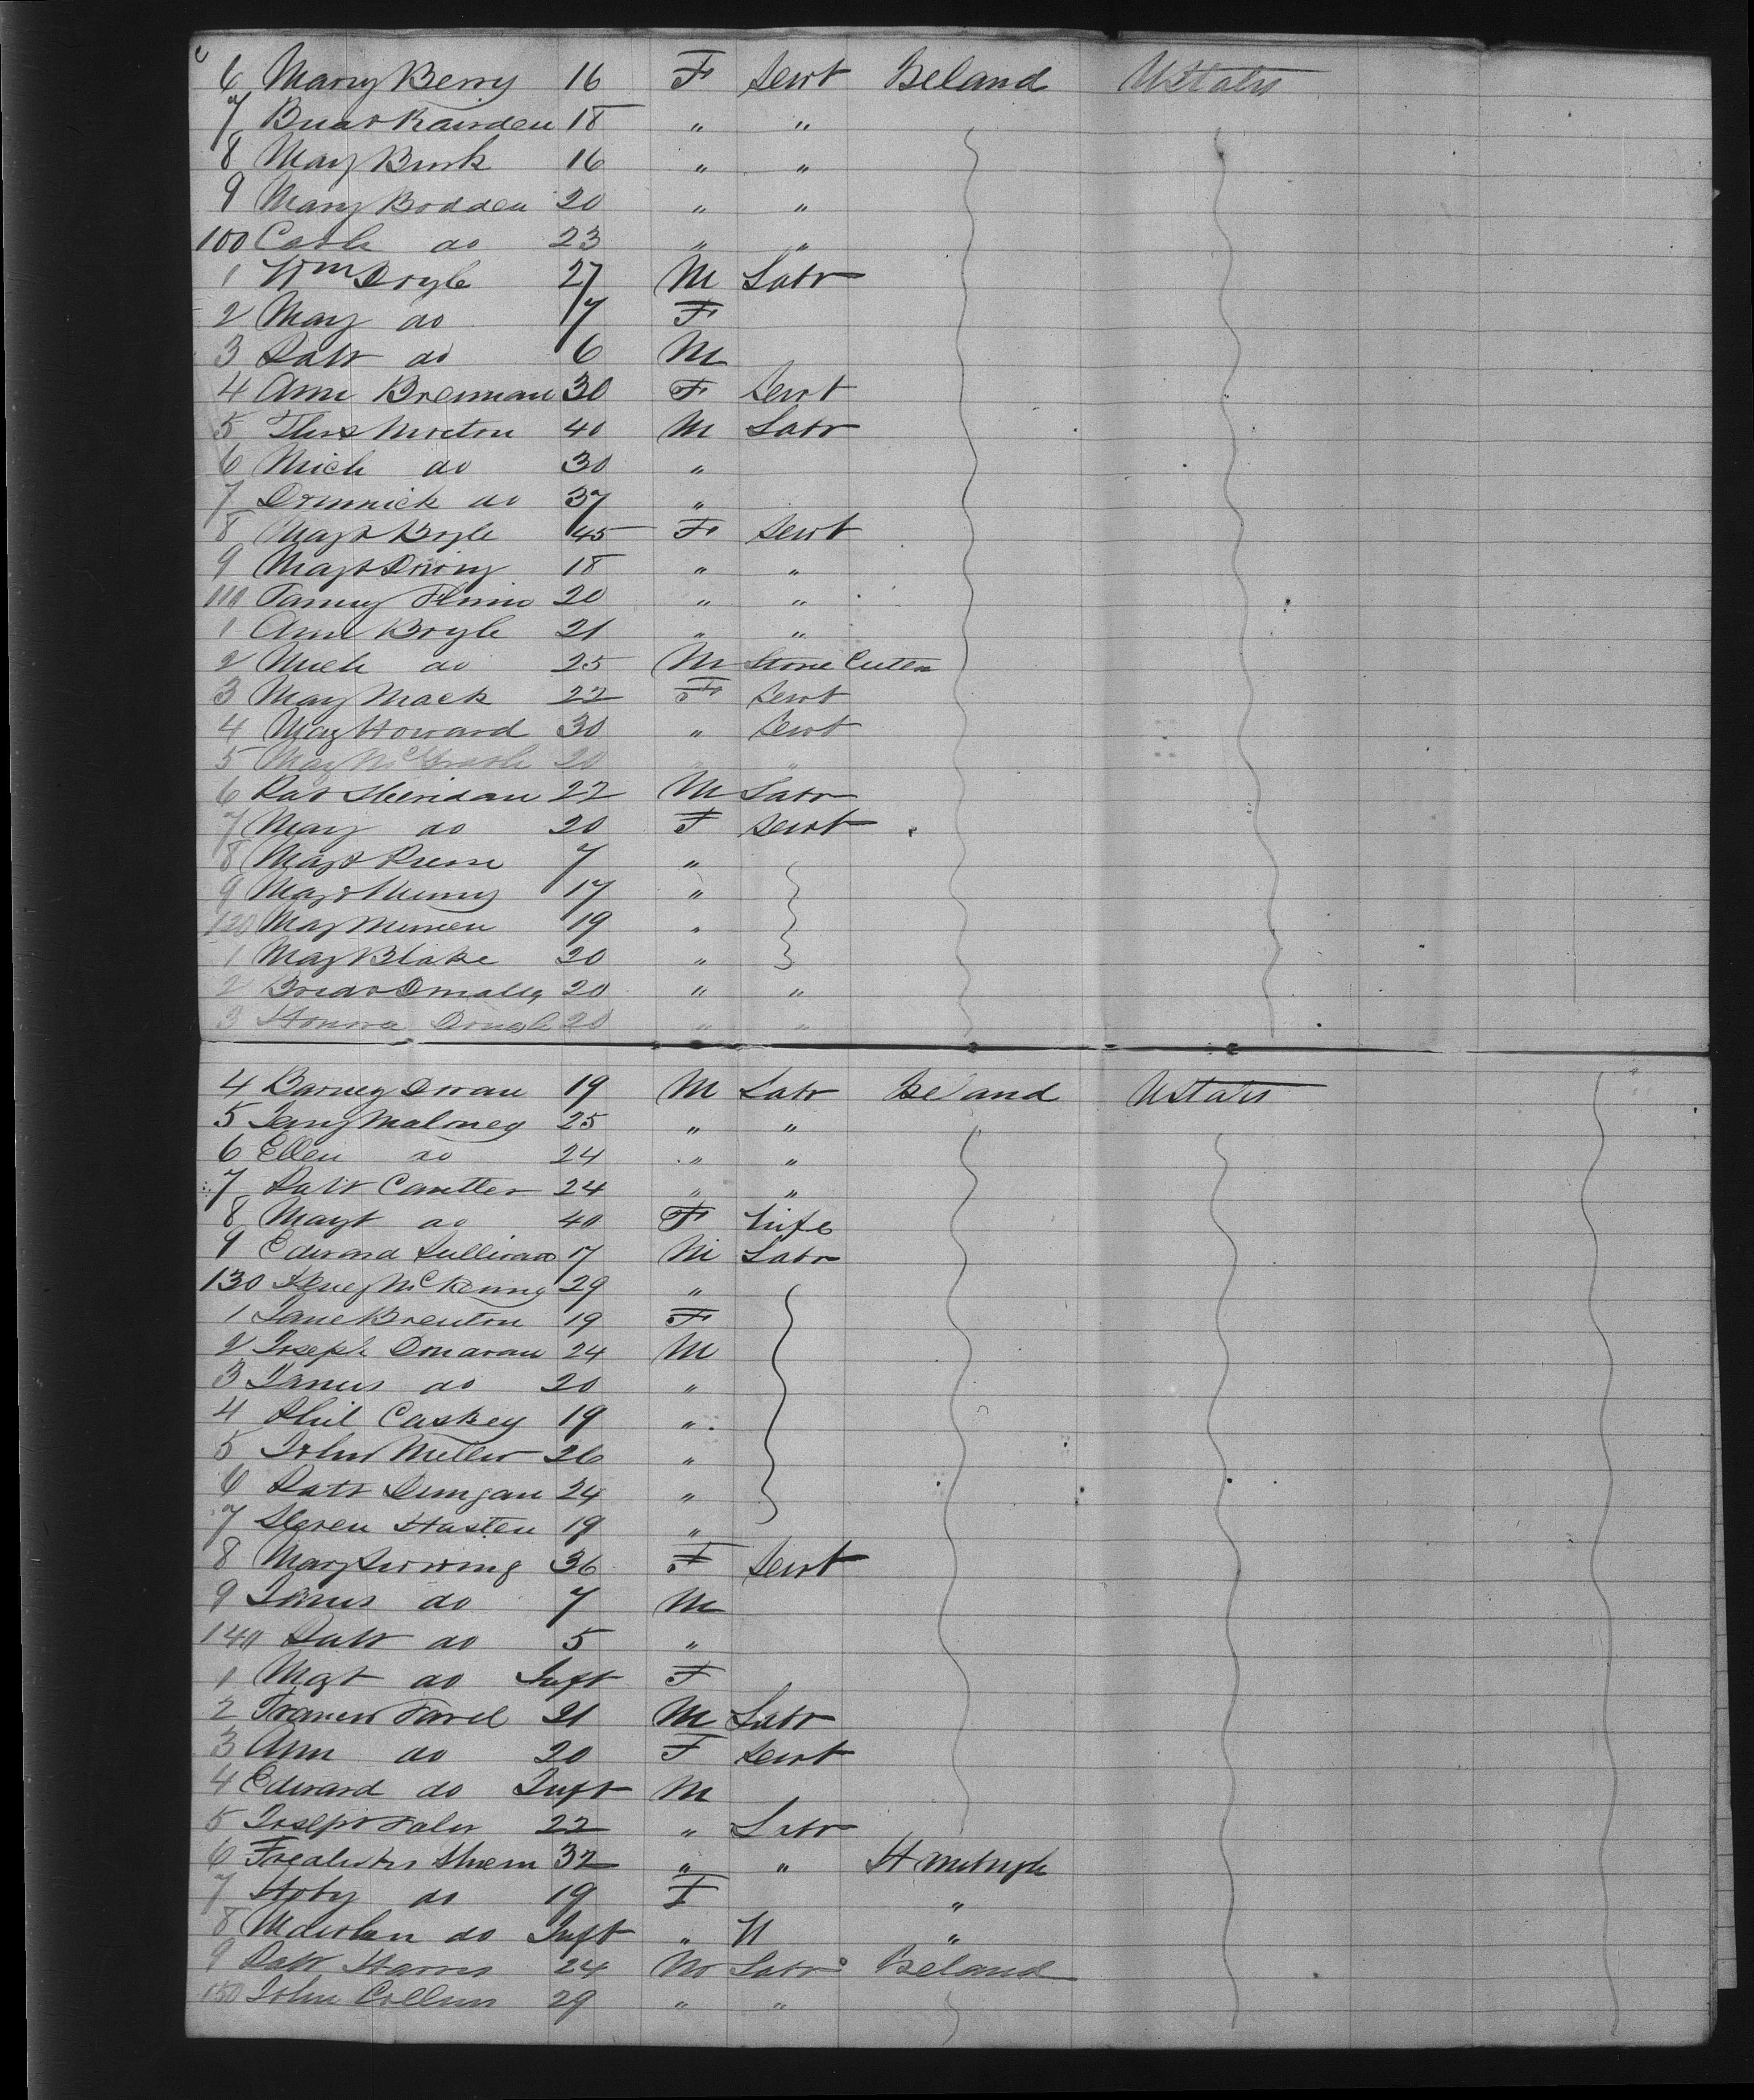 6 Mary Berry 16 F Servt Ireland UStates
7 Rairden 18 " "
8 Mary Burk 16 " "
9 Mary Bodden 20 " "
100 Cath do 23 " "
1 Wm Doyle 27 M Labr
2 Mary do 7 F
3 Patk do 6 M
4 Ann Brennan 30 F Servt
5 Thos Morton 40 M Labr
6 Mich do 30 "
7 Dominick do 37 "
8 Magt Boyle 45 F Servt
9 Magt 18 " "
110 20 " "
1 Ann Boyle 21 " "
2 Mich do 25 M Stone Cutter
3 Mary Mack 22 F Servt
4 Mary Howard 30 " Servt
5 Mary McGrath 20 " "
6 Pat Sheridan 22 M Labr
7 Mary do 20 F Servt
8 Magt 7 "
9 Magt 17 "
120 Mary 19 "
1 Mary Blake 20 "
2 Bridt 20 " "
3 Honora 20 " "
4 Barney Doran 19 M Labr Ireland UStates
5 Maloney 25 " "
6 Ellen do 24 " "
7 Patk Cantler 24 " "
8 Magt do 40 F Wife
9 Edward Sullivan 17 M Labr
130 McKenny 29 "
1 Jane Brenton 19 F
2 Joseph Donavan 24 M
3 James do 20 "
4 Phil Caskey 19 "
5 John Miller 26 "
6 Patk Dungan 24 "
7 Steven Hasten 19 "
8 Mary 36 F Servt
9 James do 7 M
140 Patk do 5 "
1 Mgt do Inft F
2 Francis 21 M Labr
3 Ann do 20 F Servt
4 Edward do Inft M
5 Joseph 22 " Labr
6 32 " "
7 do 19 F "
8 do Inft " "
9 Patk Harris 24 M Labr Ireland
150 John Collins 29 " "